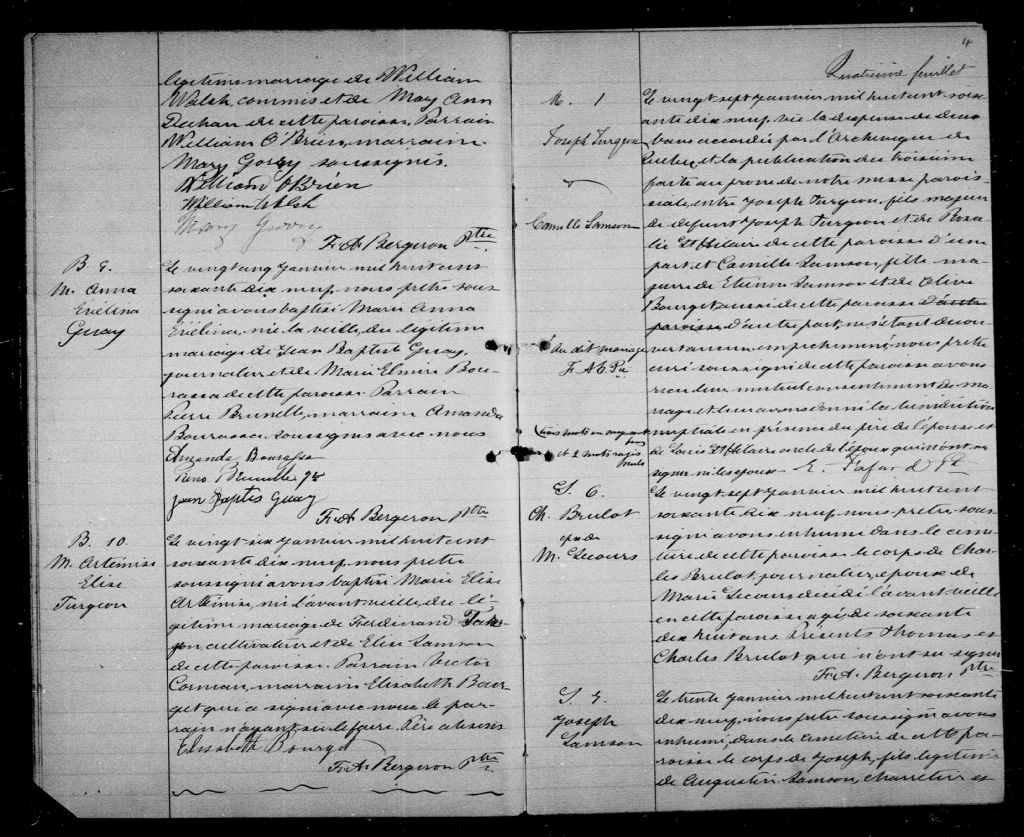 légitime mariage de William
Walsh, commis et de Mary Ann
Deehan de cette paroisse. Parrain
William O'Brien, marraine
Mary Gorgy soussignés.
William O'Brien
William Walsh
Mary
F. A. Bergeron Ptre
B 9.
M. Anna
Evélina
Guay
Le vingt cinq janvier mil huit cent
soixante dix neuf, nous prêtre sous-
signé avons baptisé Marie Anna
Evélina, née la veille, du légitime
mariage de Jean Baptiste Guay,
journalier et de Marie Elmire Bou-
rassa de cette paroisse. Parrain
Pierre Brunelle, marraine Amanda
Bourassa soussignés avec nous
Amanda Bourassa
Jean Baptes Guay
F. A. Bergeron Ptre
B. 10.
M. Artémise
Elise
Turgeon
Le vingt-six janvier mil huit cent
soixante dix neuf, nous prêtre
soussigné avons baptisé Marie Elise
Artémise, née l'avant veille, du lé-
gitime mariage de Ferdinand Tur-
geon cultivateur et de Elise Samson
de cette paroisse. Parrain Victor
Corneau, marraine Elisabeth Bour-
get qui a signé avec nous le par-
rain n'ayant su le faire. Père absent
Elisabeth Bourget
F. A. Bergeron Ptre
4
Quatrième feuillet
M. 1
Joseph Turgeon
Camille Samson
Le vingt sept janvier mil huit cent soix-
ante dix neuf, vu la dispense de deux
bans accordée par l'Archevêque de
Québec, et la publication du troisième
faite au prône de notre messe parois-
siale, entre Joseph Turgeon, fils majeur
de défunt Joseph Turgeon et de Rosa-
lie St Hilaire de cette paroisse d'une
part et Camille Samson, fille ma-
jeure de Etienne Samson et de Olive
Bourget aussi de cette paroisse d'autre
paroisse d'autre part, ne s'étant décou-
vert aucun empêchement, nous prêtre
curé soussigné de cette paroisse avons
reçu leur mutuel consentement de ma-
riage et leur avons donné la bénédiction
nuptiale en présence du père de l'épouse et
de Louis St Hilaire oncle de l'époux qui n'ont su
signer ni les époux E. Fafard Ptre
du dit mariage
F. A. B. Ptre
trois mots en marge sont
bons
et 2 mots rayés
nuls
S. 6.
Ch. Brulot
epx de
M. Lecours
Le vingt-sept janvier mil huit cent
soixante dix neuf, nous prêtre sous-
signé avons inhumé dans le cime-
tière de cette paroisse le corps de Char-
les Brulot, journalier, époux de
Marie Lecours décédé l'avant veille
en cette paroisse agé de soixante
dix huit ans. Présents Thomas et
Charles Brulot qui n'ont su signer
F. A. Bergeron Ptre
S. 7
Joseph
Samson
Le trente janvier mil huit cent soixante
dix neuf, nous prêtre soussigné avons
inhumé, dans le cimetière de cette pa-
roisse le corps de Joseph, fils légitime
de Augustin Samson, charretier et